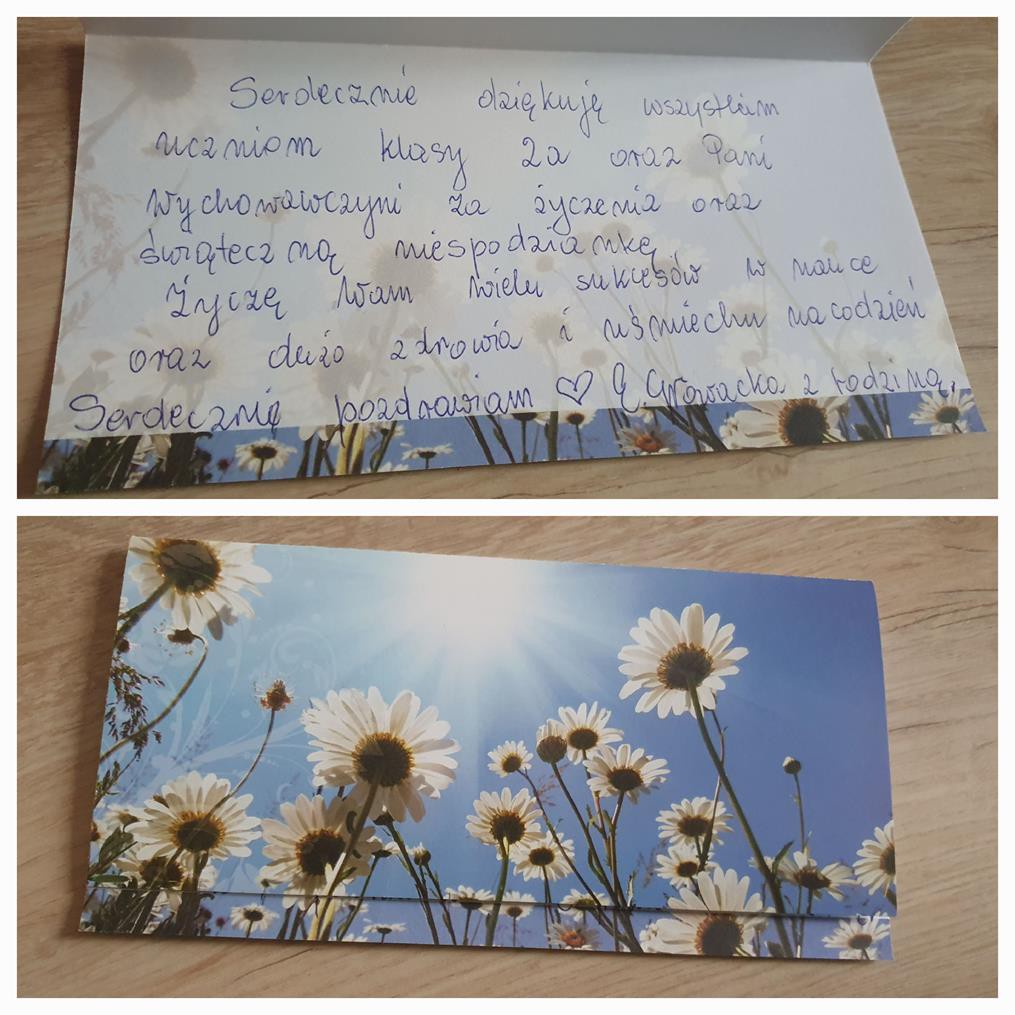 Serdecznie dziękuję wszystkim
uczniom klasy 2a oraz Pani
Wychowawczyni za życzenia oraz
świąteczną niespodziankę
Życzę Wam wielu sukcesów w nauce
oraz dużo zdrowia i uśmiechu nacodzień
Serdecznie pozdrawiam ♡ E. Nowacka z rodziną.